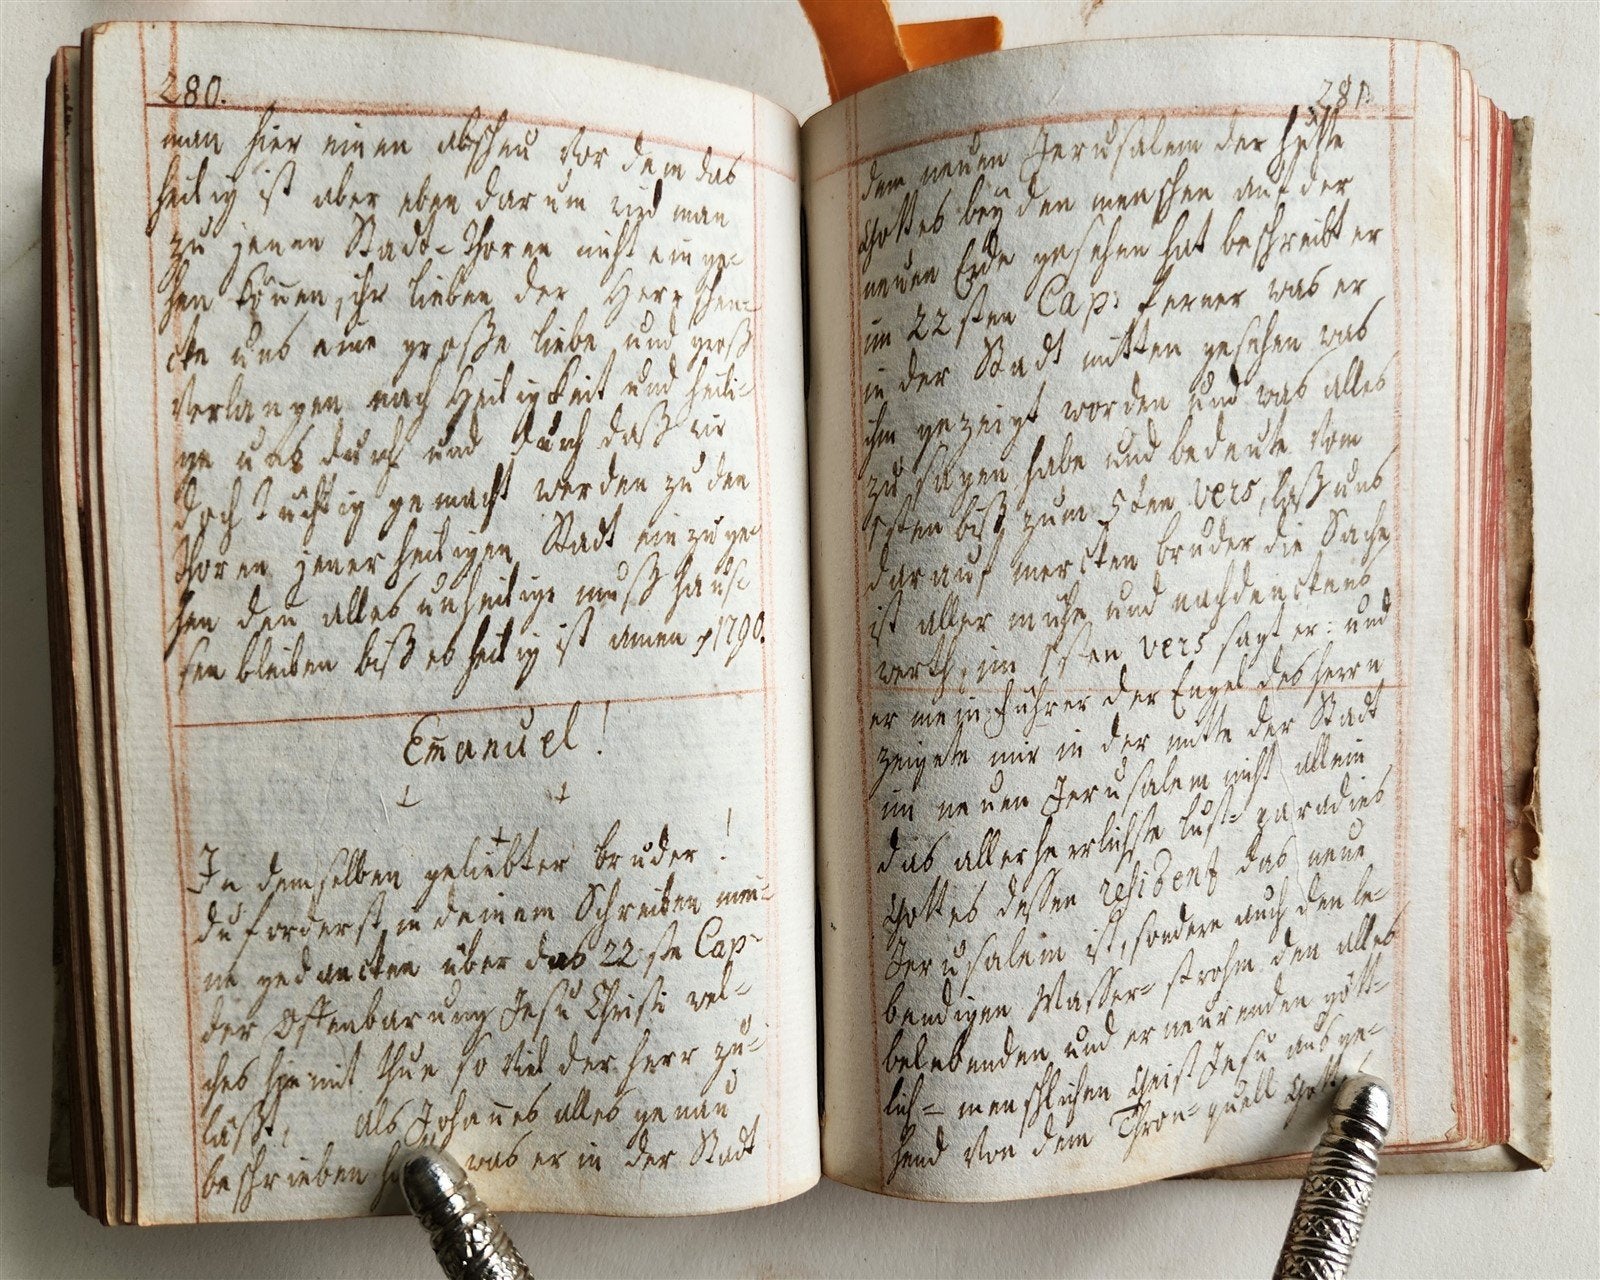 280.
man hier einen abscheu vor dem das
heilig ist aber eben darum wird man
zu jenen Stadt-Thoren nicht einge-
hen können, ihr lieben der Herr schen-
cke uns eine große liebe und groß
verlangen nach Heiligkeit und heili-
ge uns durch und durch daß wir
doch tüchtig gemacht werden zu den
Thoren jener heiligen Stadt einzuge-
hen den alles unheilige muß hauß-
sen bleiben biß es heilig ist amen 1790.
Emanuel!
In demselben geliebter bruder!
du forderst in deinem Schreiben mei-
ne gedancken über das 22ste Cap
der Offenbarung Jesu Christi wel-
ches hiemit thue so viel der herr zu-
läßt, als Johannes alles genau
beschrieben was er in der Stadt
281.
dem neuen Jerusalem der Hütte
Gottes beÿ den menschen auf der
neuen Erde gesehen hat beschreibt er
im 22sten Cap: ferner was er
in der Stadt mitten gesehen was
ihm gezeigt worden und was alles
zu sagen habe und bedeute vom
1sten biß zum 5ten vers, laß uns
darauf mercken bruder die Sache
ist aller mühe und nachdenckens
werth, im 1sten vers sagt er: und
er mein führer der Engel des herrn
zeigete mir in der mitte der Stadt
im neuen Jerusalem nicht allein
das allerherrlichste lust-paradies
Gottes dessen residentz das neue
Jerusalem ist, sondern auch den le-
bendigen Wasser-strohm den alles
belebenden und erneurenden gött-
lich-menschlichen Geist Jesu ausge-
hend von dem Thron-quell